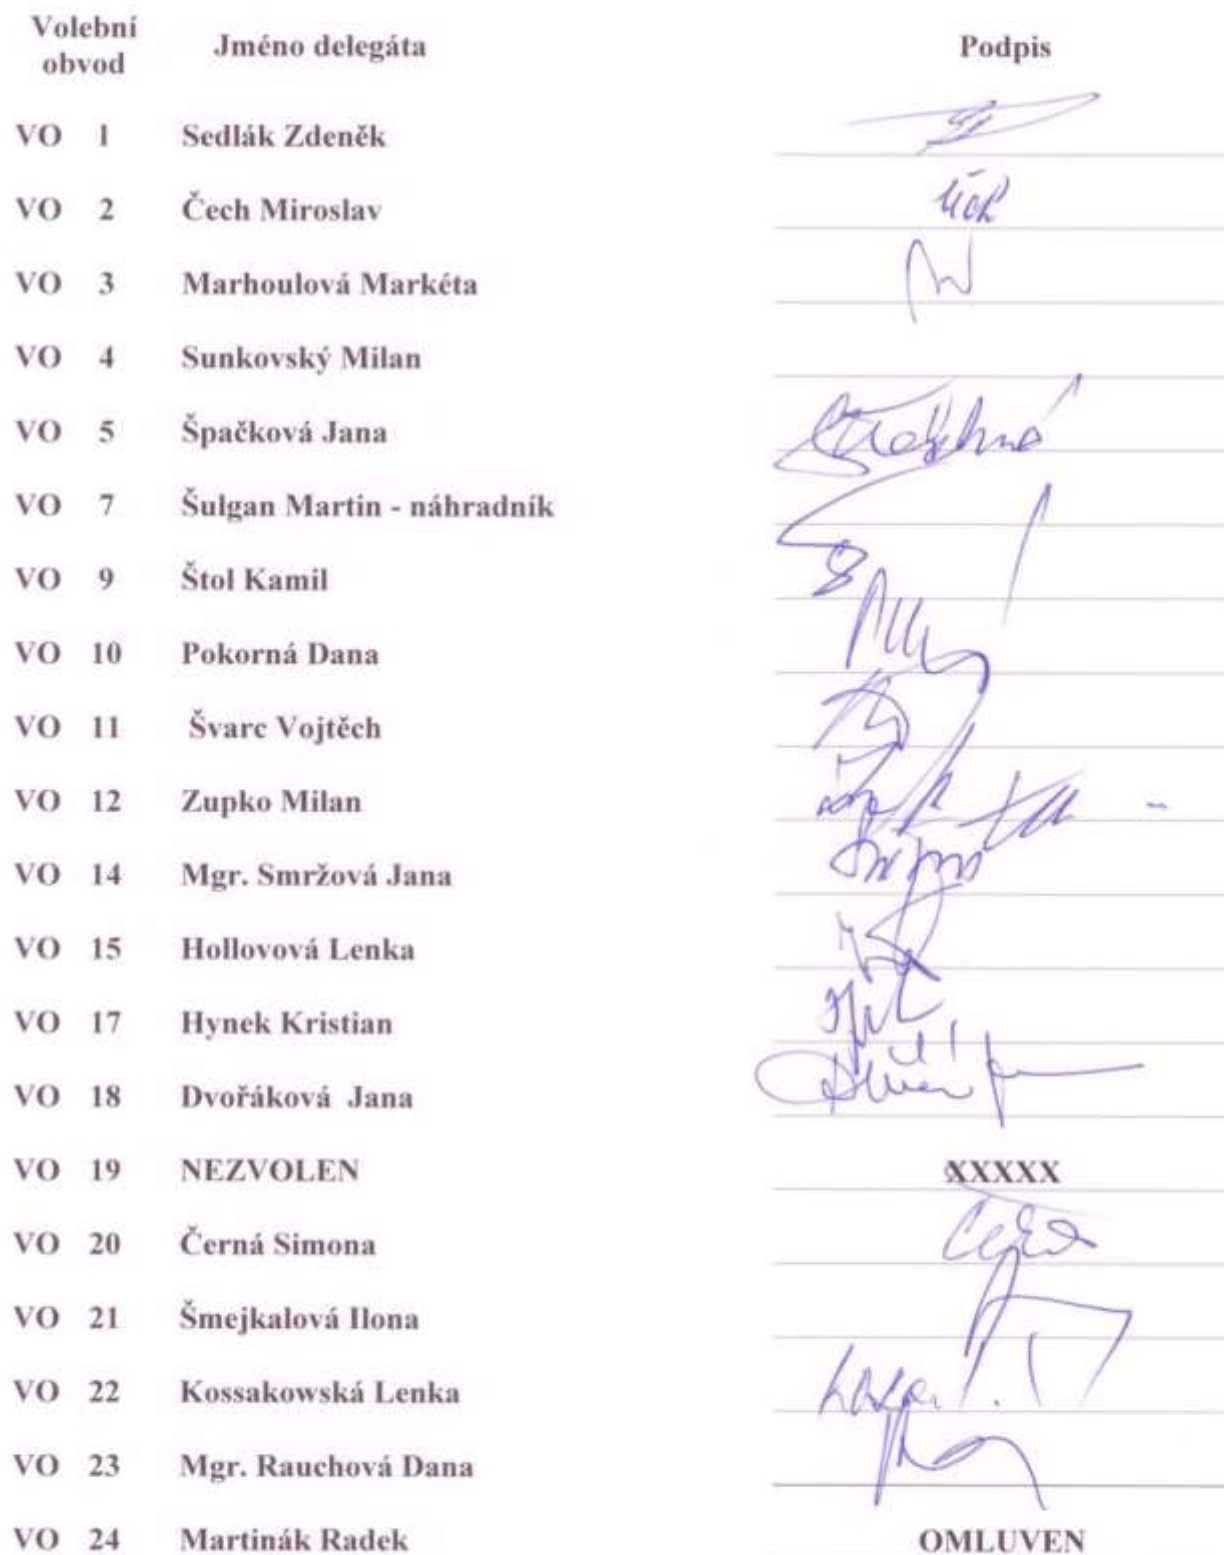 Volební obvod Jméno delegáta Podpis
VO 1 Sedlák Zdeněk
VO 2 Čech Miroslav
VO 3 Marhoulová Markéta
VO 4 Sunkovský Milan
VO 5 Špačková Jana
VO 7 Šulgan Martin - náhradník
VO 9 Štol Kamil
VO 10 Pokorná Dana
VO 11 Švarc Vojtěch
VO 12 Zupko Milan
VO 14 Mgr. Smržová Jana
VO 15 Hollovová Lenka
VO 17 Hynek Kristian
VO 18 Dvořáková Jana
VO 19 NEZVOLEN XXXXX
VO 20 Černá Simona
VO 21 Šmejkalová Ilona
VO 22 Kossakowská Lenka
VO 23 Mgr. Rauchová Dana
VO 24 Martinák Radek OMLUVEN